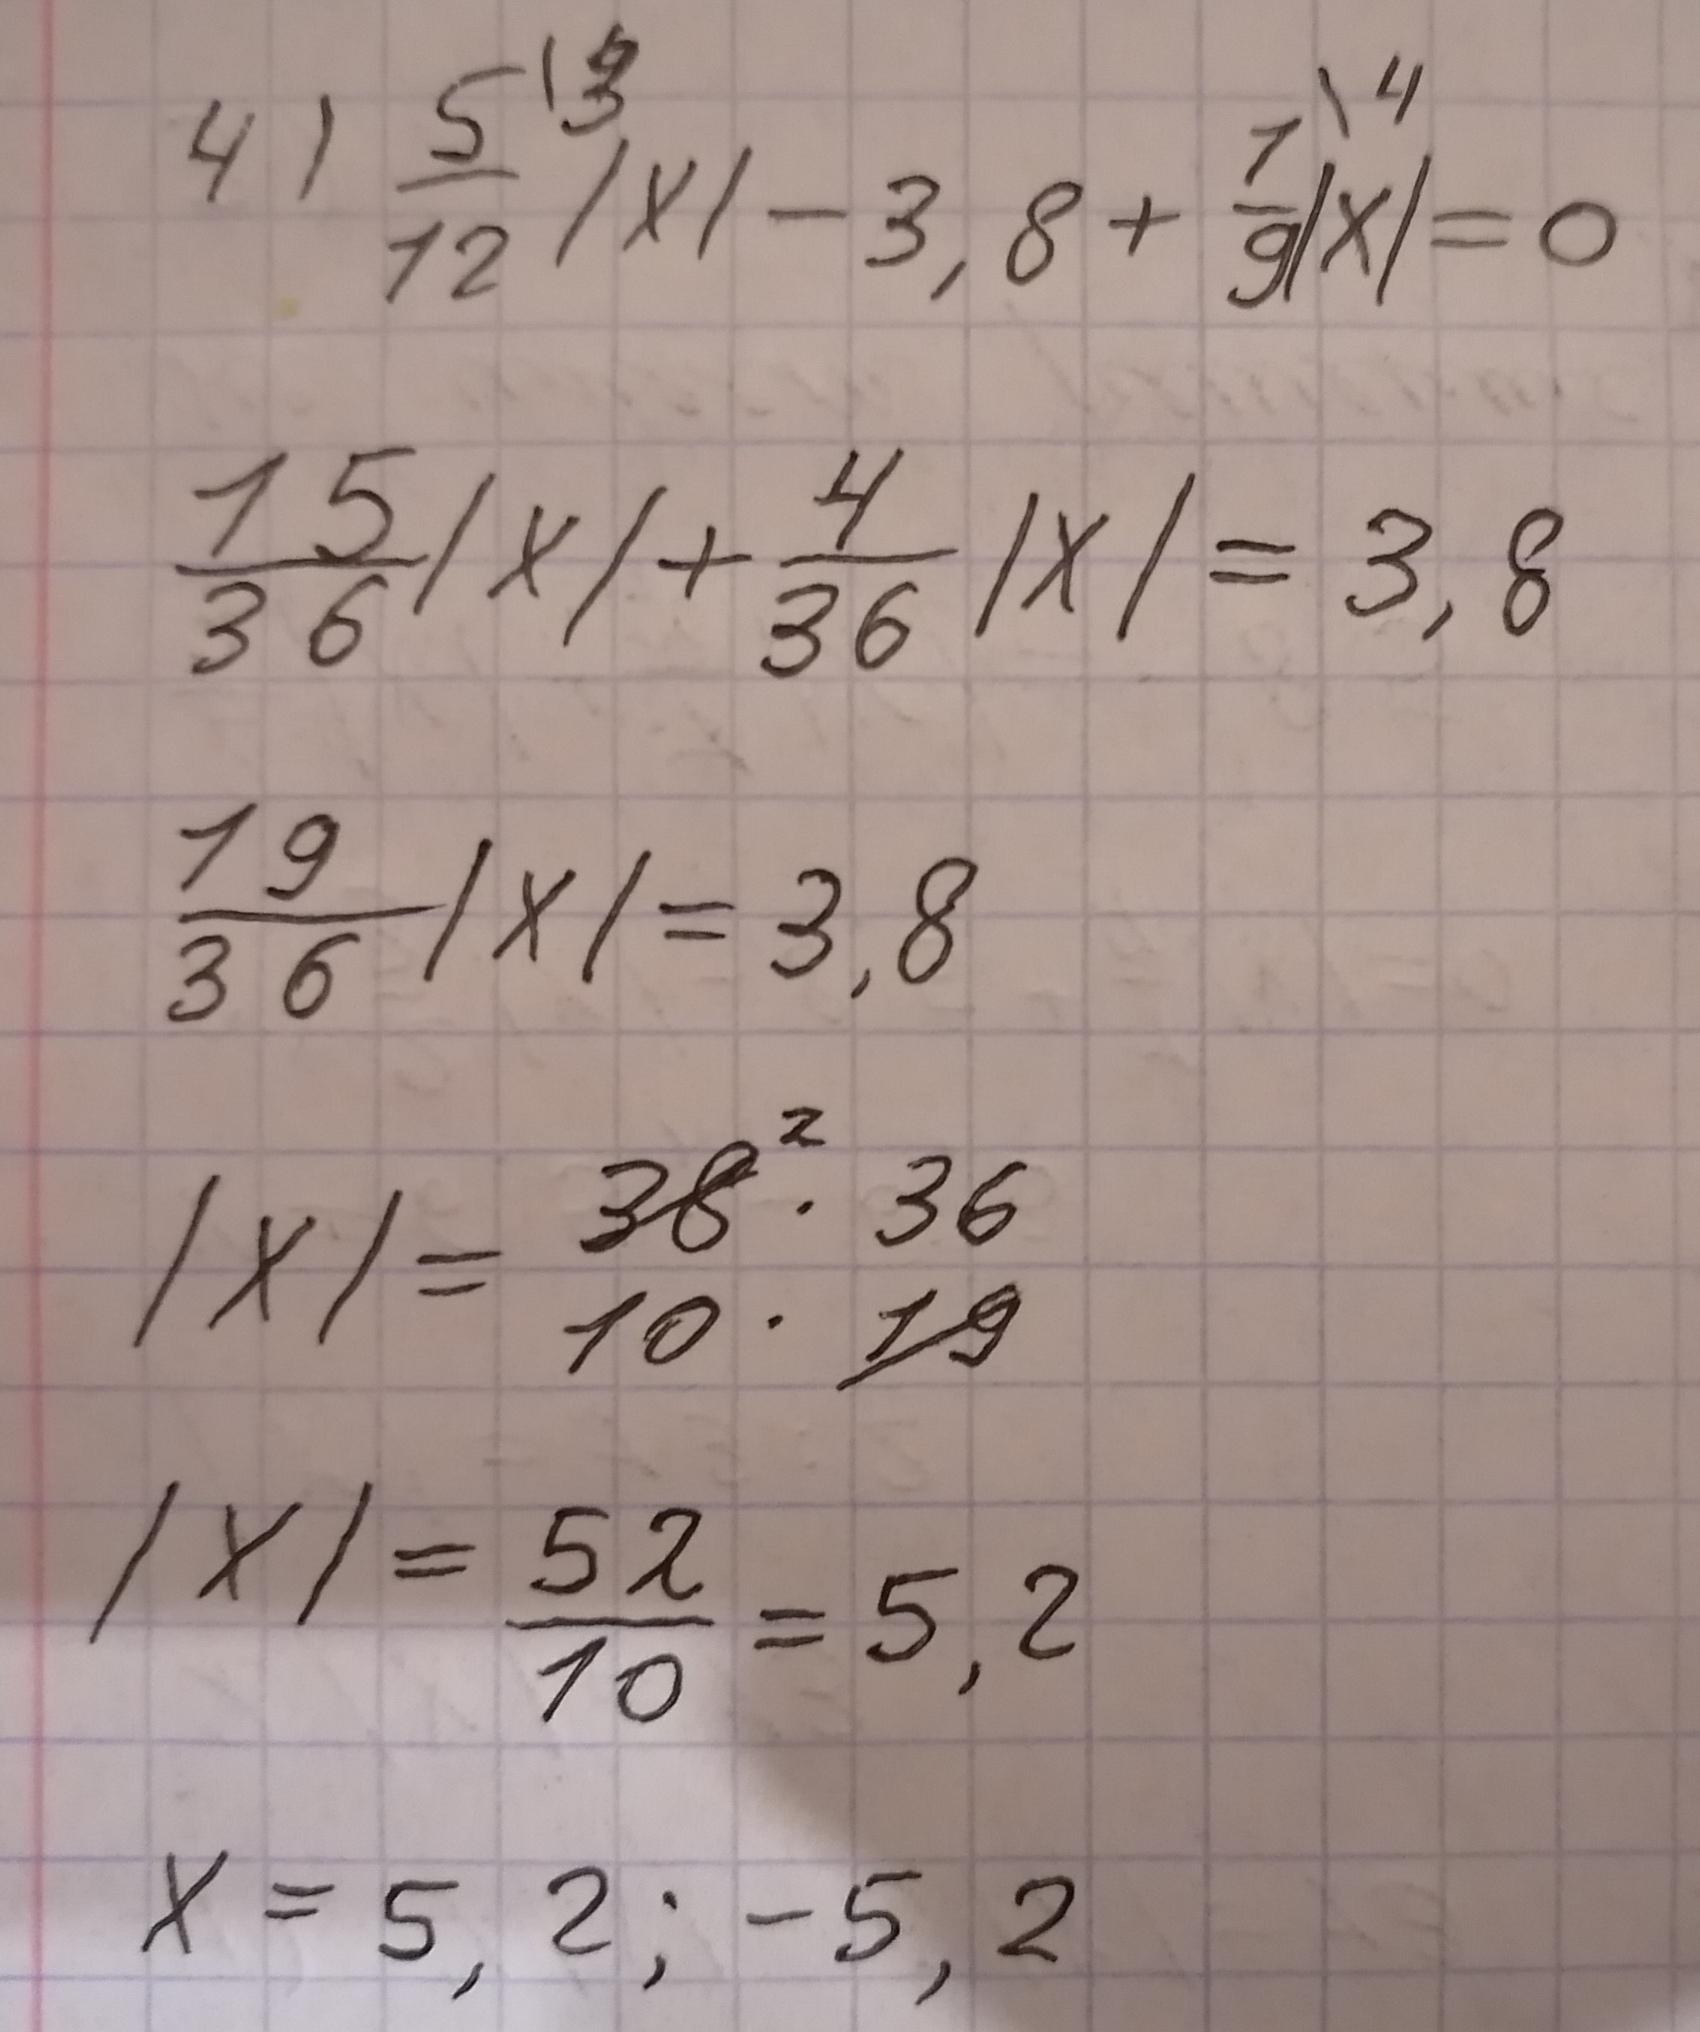 4) 5/12 \3 |x| - 3,8 + 1/9 \4 |x| = 0
15/36 |x| + 4/36 |x| = 3,8
19/36 |x| = 3,8
|x| = 38² · 36
10 · 19
|x| = 52/10 = 5,2
x = 5,2; -5,2